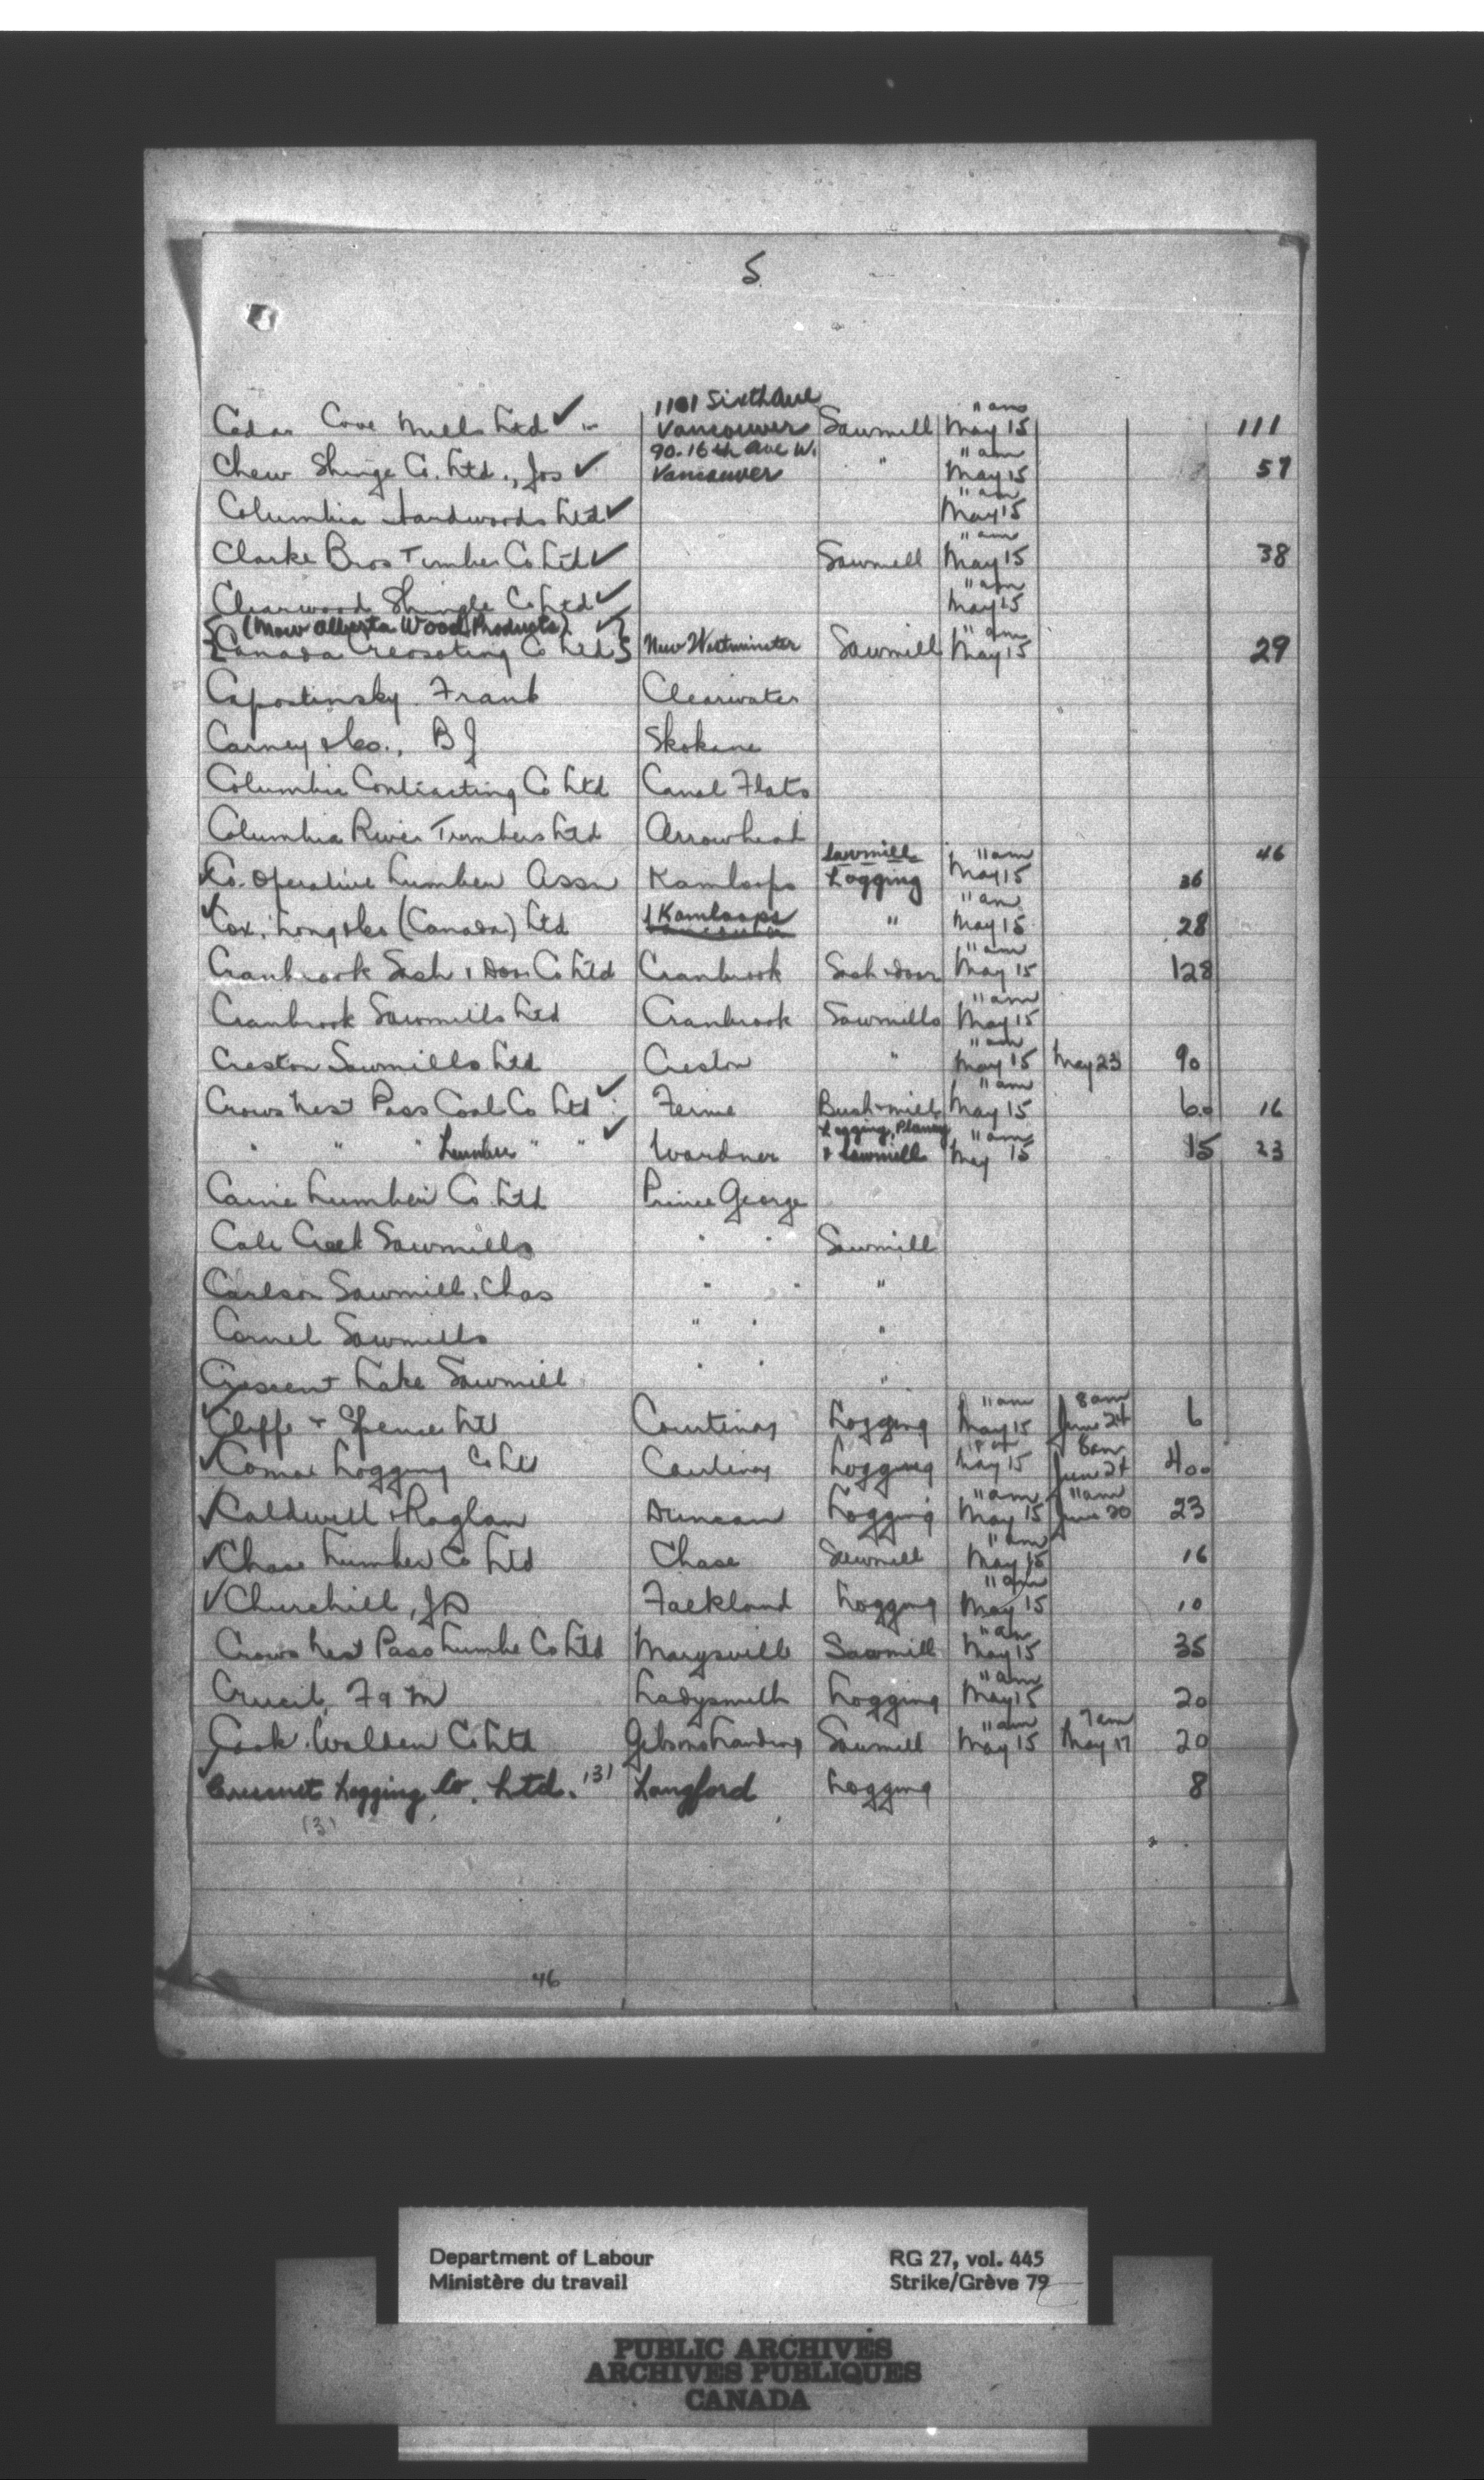 5
Cedar Cove Mills Ltd ✓ 1101 Sixth Ave Vancouver Sawmill 11 am May 15 111
Chew Shinge Co. Ltd., Jos ✓ 90-16th Ave W. Vancouver " 11 am May 15 57
Columbia Hardwoods Ltd ✓ 11 am May 15
Clarke Bros Timber Co Ltd ✓ Sawmill 11 am May 15 38
Clearwood Shingle Co Ltd ✓ 11 am May 15
(Now Alberta Wood Products) ✓
Canada Creosoting Co Ltd New Westminster Sawmill 11 am May 15 29
Capostinsky. Frank Clearwater
Carney & Co., B J Skokane
Columbia Contracting Co Ltd Canal Flats
Columbia River Timbers Ltd Arrowhead
Co-operative Lumber Assn Kamloops Sawmill Logging 11 am May 15 36 46
✓ Cox, Long & Co (Canada) Ltd Kamloops " 11 am May 15 28
Cranbrook Sash & Door Co Ltd Cranbrook Sash & Door 11 am May 15 128
Cranbrook Sawmills Ltd Cranbrook Sawmills 11 am May 15
Creston Sawmills Ltd Creston " 11 am May 15 May 23 90
Crows Nest Pass Coal Co Ltd ✓ Fernie Bush & mill 11 am May 15 60 16
" " " Lumber " " ✓ Wardner Logging, Planing & Sawmill 11 am May 15 15 23
Caine Lumber Co. Ltd Prince George
Cale Creek Sawmills " " Sawmill
Carlson Sawmill, Chas " " "
Cornel Sawmills " " "
Crescent Lake Sawmill " " "
✓ Cliffe & Spence Ltd Courtenay Logging 11 am May 15 8 am June 24 6
✓ Comox Logging Co Ltd Courtenay Logging May 15 8 am June 24 400
✓ Caldwell & Raglan Duncan Logging 11 am May 15 11 am June 20 23
✓ Chase Lumber Co Ltd Chase Sawmill 11 am May 15 16
✓ Churchill, J D Falkland Logging 11 am May 15 10
Crows Nest Pass Lumbe Co Ltd Marysville Sawmill 11 am May 15 35
Crucil, F & M Ladysmith Logging 11 am May 15 20
Cook. Walden Co Ltd Gibsons Landing Sawmill 11 am May 15 7 am May 17 20
✓ Logging Co. Ltd. (3) Langford Logging 8
(3)
46
Department of Labour
Ministère du travail
RG 27, vol. 445
Strike/Grève 79
PUBLIC ARCHIVES
ARCHIVES PUBLIQUES
CANADA